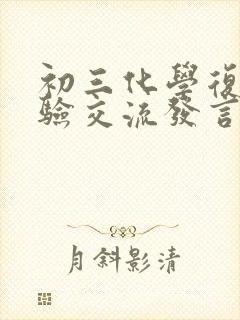 初三化學復
驗交流發言
月斜影清